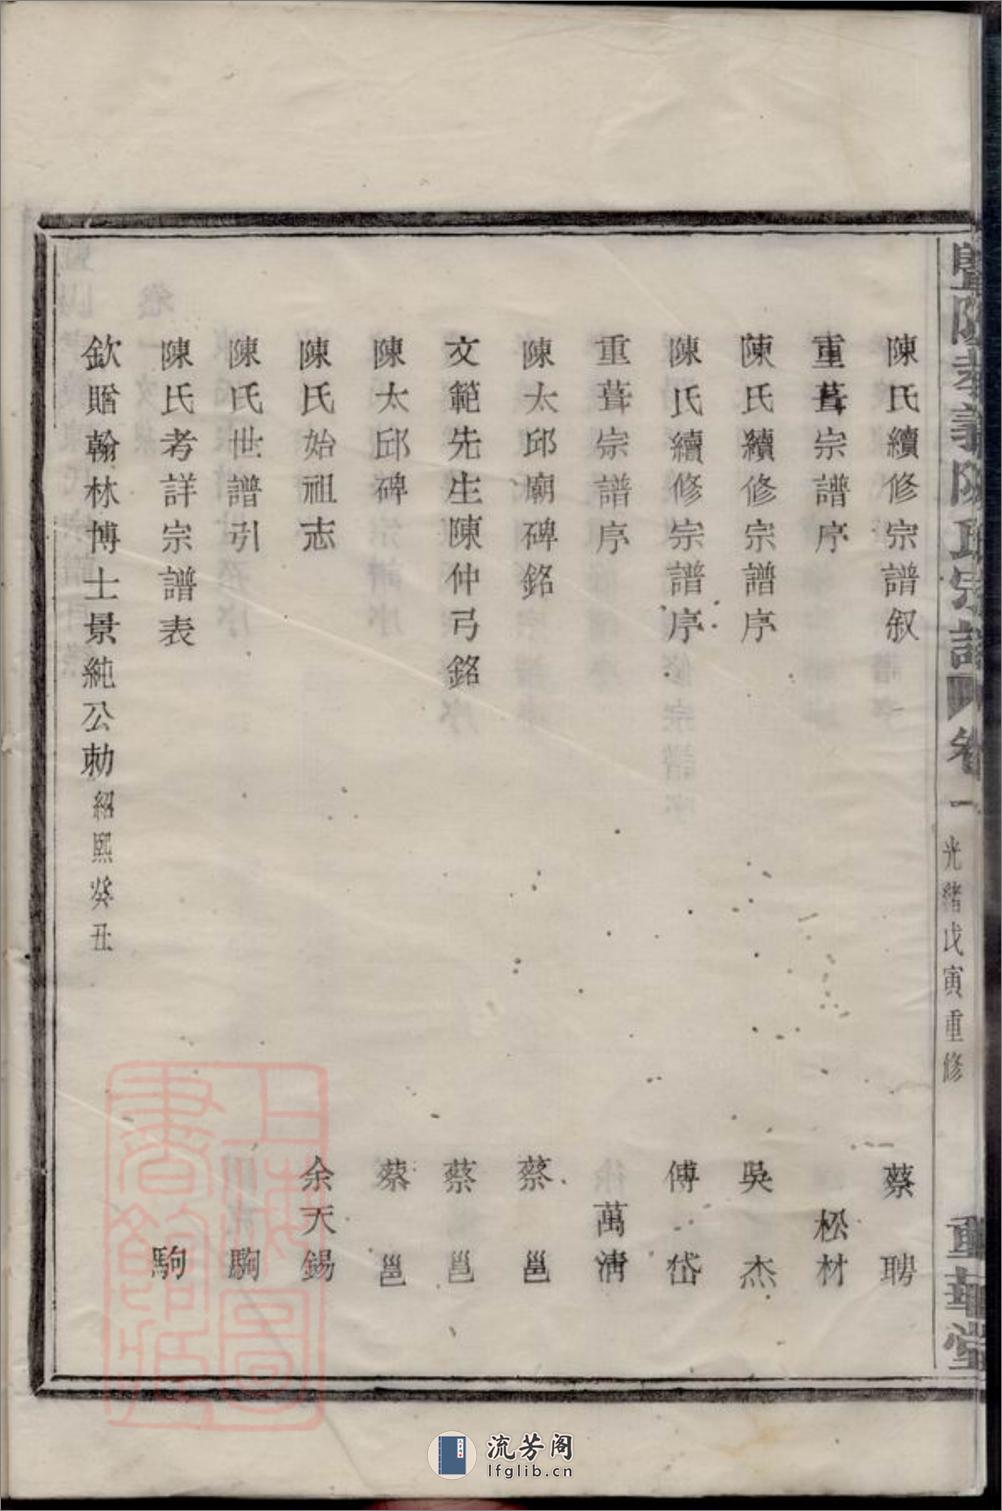 暨陽孝義陳氏宗譜 卷一 光緒戊寅重修 重華堂
陳氏續修宗譜叙 蔡聘
重葺宗譜序 松材
陳氏續修宗譜序 吳杰
陳氏續修宗譜序 傅岱
重葺宗譜序 萬清
陳太邱廟碑銘 蔡邕
文範先生陳仲弓銘 蔡邕
陳太邱碑 蔡邕
陳氏始祖志 余天錫
陳氏世譜引 駒
陳氏考詳宗譜表 駒
欽贈翰林博士景純公勅 紹熙癸丑
上海圖書館藏
流芳阁
lfglib.cn